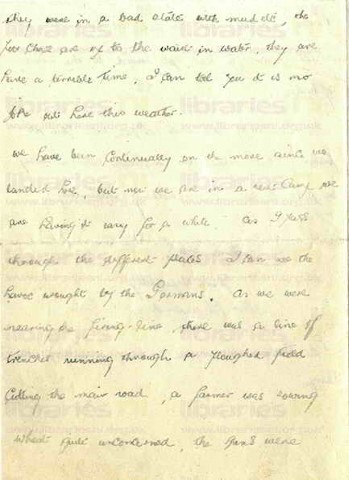 they were in a bad state with mud etc, the
are up to the waist in water, they are
have a terrible time, I can tell you it is no
joke out here this weather.
we have been continually on the move since we
landed here, but now we are in a rest Camp we
are having it easy for a while. as I pass
through the different places I can see the
havoc wrought by the Germans. As we were
nearing the firing-line, there was a line of
trenches running through a ploughed field
Cutting the main road, a farmer was sowing
wheat quite unconcerned, the guns were